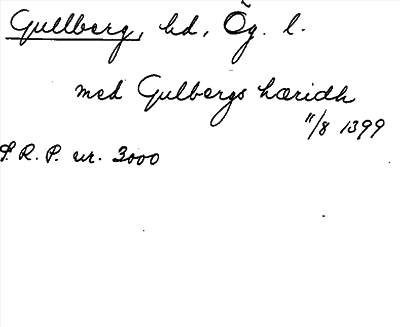 Gullberg, hd, Ög. l.
med Gulbergs hæridh
11/8 1399
S.R.P. nr. 3000